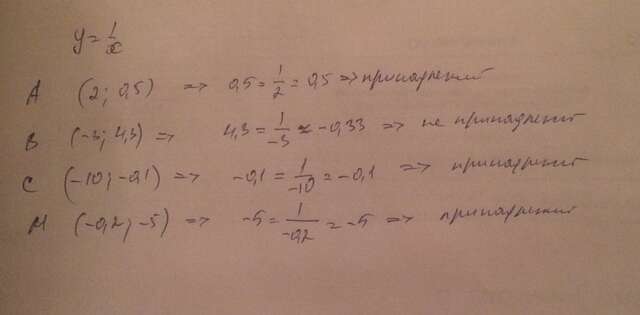 y=1/x
A (2; 0,5) => 0,5 = 1/2 = 0,5 => принадлежит
B (-3; 4,3) => 4,3 = 1/-3 ≈ -0,33 => не принадлежит
C (-10; -0,1) => -0,1 = 1/-10 = -0,1 => принадлежит
M (-0,2; -5) => -5 = 1/-0,2 = -5 => принадлежит